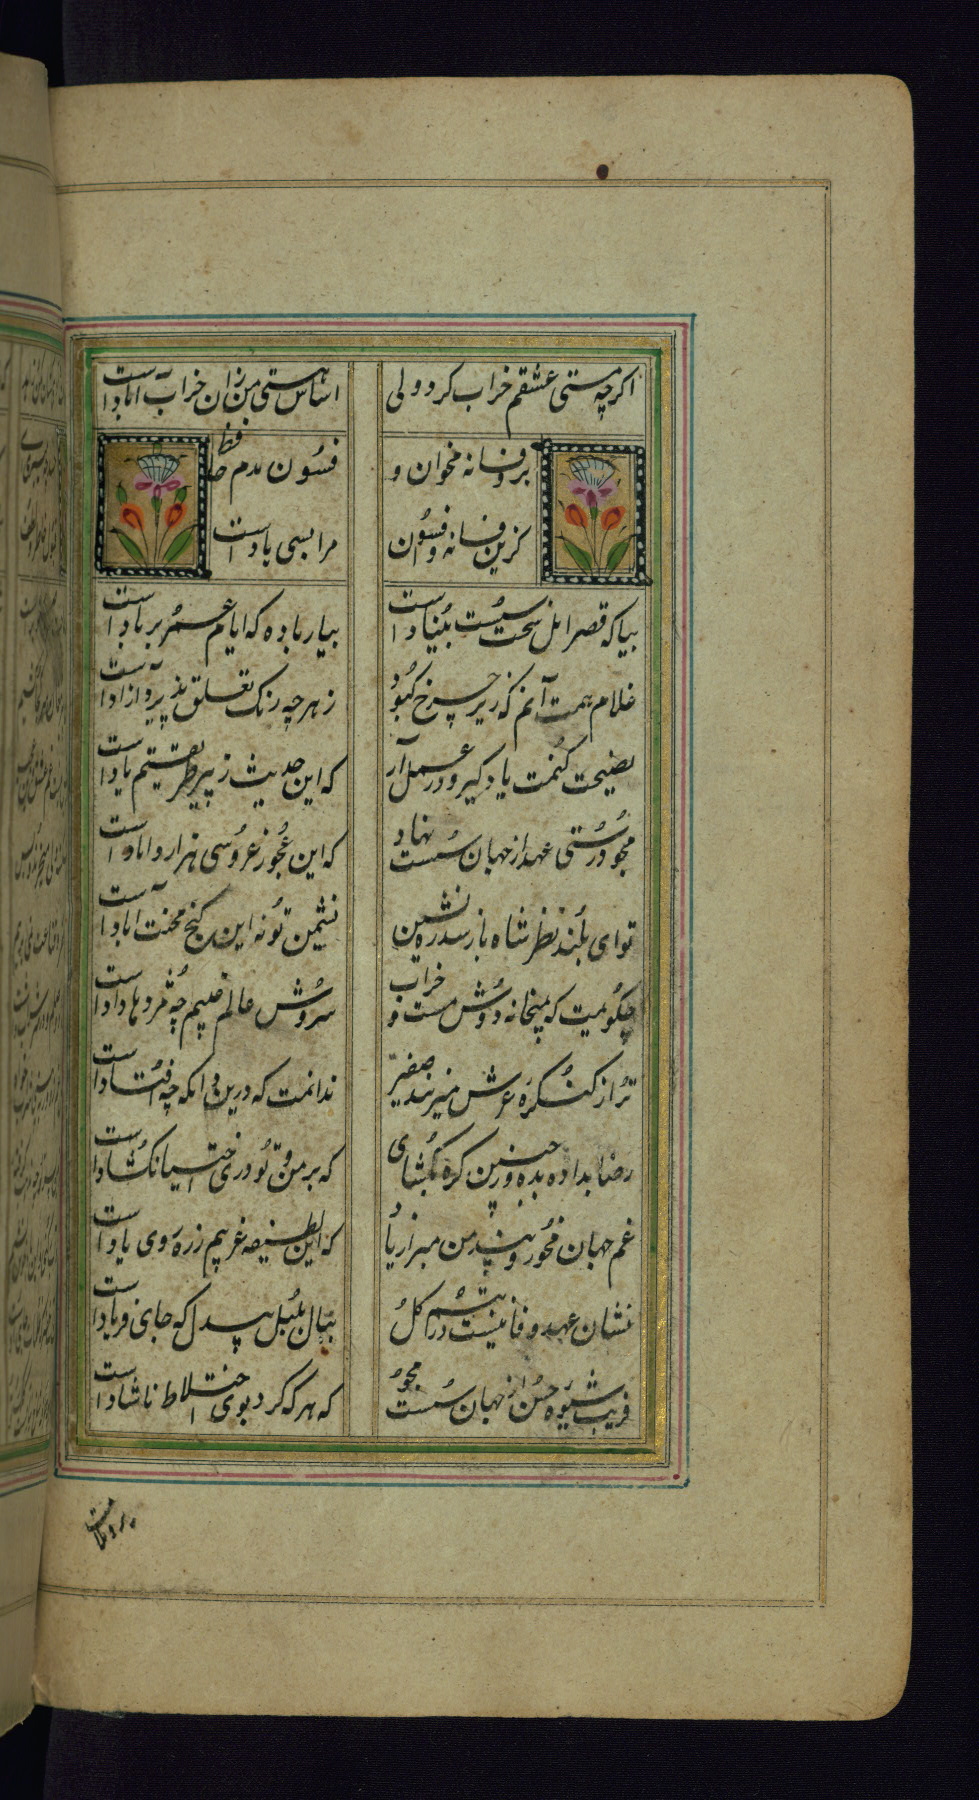 اکرچه مستی عشقم خراب کرد ولی
اساس هستی من زان خراب آبادست
برو فسانه مخوان و
فسون مدم حافظ
کزین فسانه و فسون
مرا بسی یادست
بیا که قصر امل سخت سست بنیادست
بیار باده که ایام عمر بر بادست
غلام همت آنم که زیر چرخ کبود
ز هر چه رنک تعلق پذیرد آزادست
نصیحت کنمت یاد کیر و در عمل آر
که این حدیث ز پیر طریقتم یادست
مجو درستی عهد از جهان سست نهاد
که این عجوز عروسی هزار دامادست
تو ای بلند نظر شاه باز سدره نشین
نشیمن تو نه این کنج محنت آبادست
چکویمت که بمیخانه دوش مست و خراب
سروش عالم غیبم چه مژدها دادست
ترا ز کنکره عرش میزنند صفیر
ندانمت که درین دامکه چه افتادست
رضا بداده بده وز جبین کره بکشای
که بر من و تو در اختیار نکشادست
غم جهان مخور و پند من مبر از یاد
که این لطیفه نغزم ز ره روی یادست
نشان عهد و وفا نیست در تبسم کل
بنال بلبل بیدل که جای فریادست
فریب شیوه حسن از جهان سست مجو
که هر که کرد بوی اختلاط ناشادست